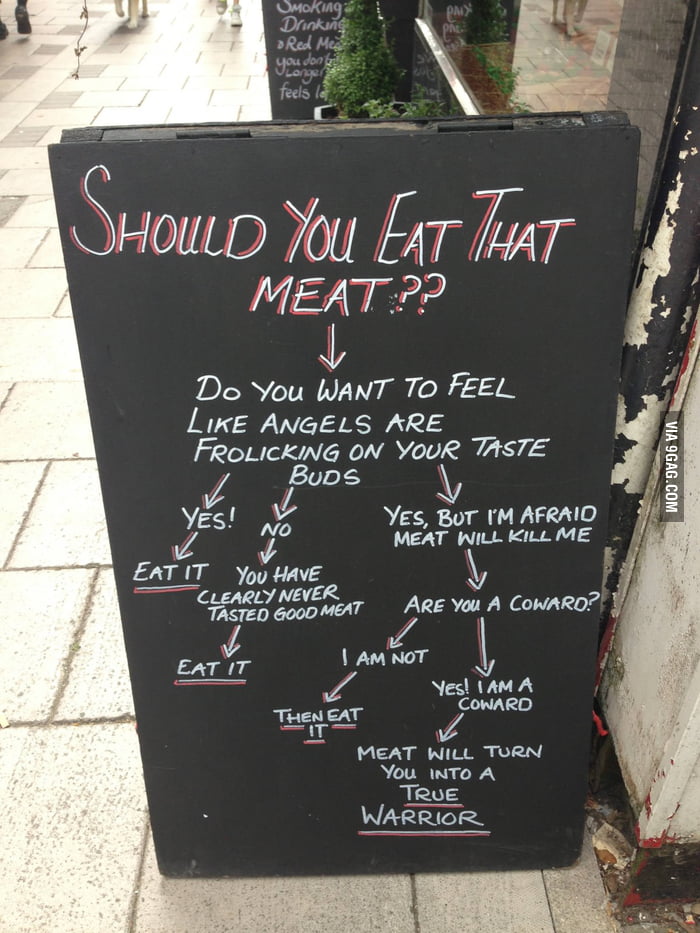 Smoking
Drinking
Red Me
you don
Longer
feels l
SHOULD YOU EAT THAT
MEAT??
DO YOU WANT TO FEEL
LIKE ANGELS ARE
FROLICKING ON YOUR TASTE
BUDS
YES!
NO
YES, BUT I'M AFRAID
MEAT WILL KILL ME
EAT IT
YOU HAVE
CLEARLY NEVER
TASTED GOOD MEAT
ARE YOU A COWARD?
EAT IT
I AM NOT
YES! I AM A
COWARD
THEN EAT
IT
MEAT WILL TURN
YOU INTO A
TRUE
WARRIOR
VIA 9GAG.COM